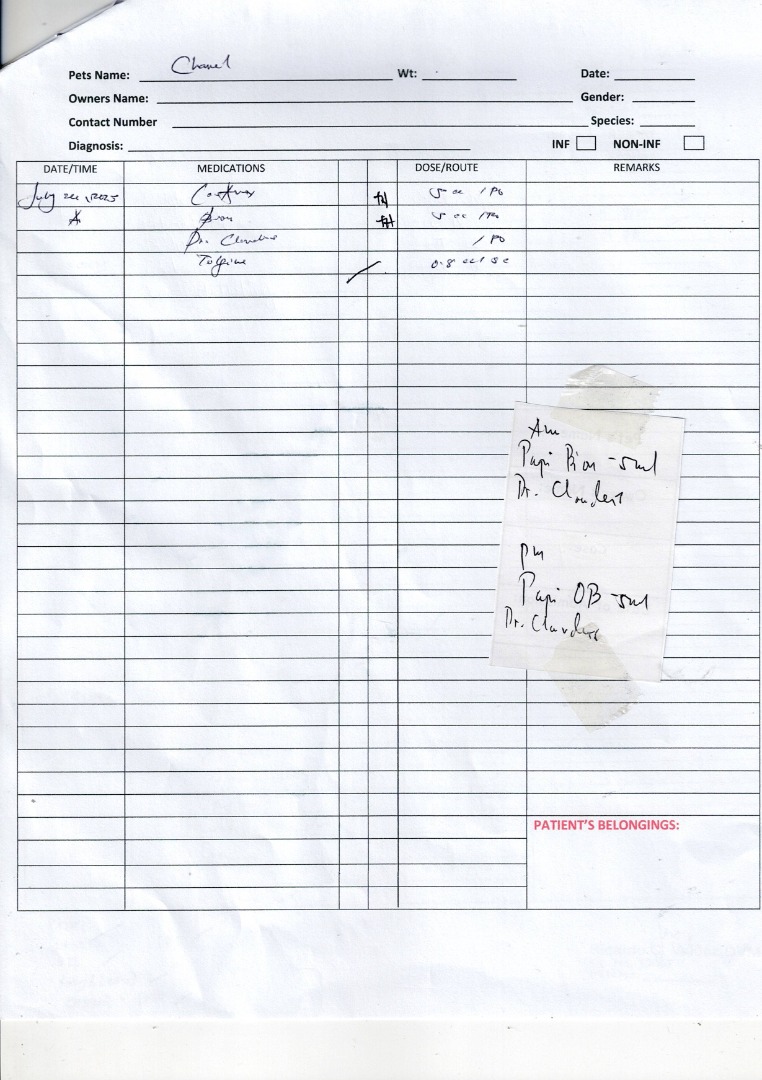 Pets Name: Chanel Wt: Date:
Owners Name: Gender:
Contact Number Species:
Diagnosis: INF NON-INF
DATE/TIME MEDICATIONS DOSE/ROUTE REMARKS
July 2025 5 cc / PO
5 cc / PO
Dr. / PO
Tolfine 0.8 cc / SC
Am
Papi Bion - 5ml
Dr. Clauders
pm
Papi OB - 5ml
Dr. Clauders
PATIENT'S BELONGINGS: